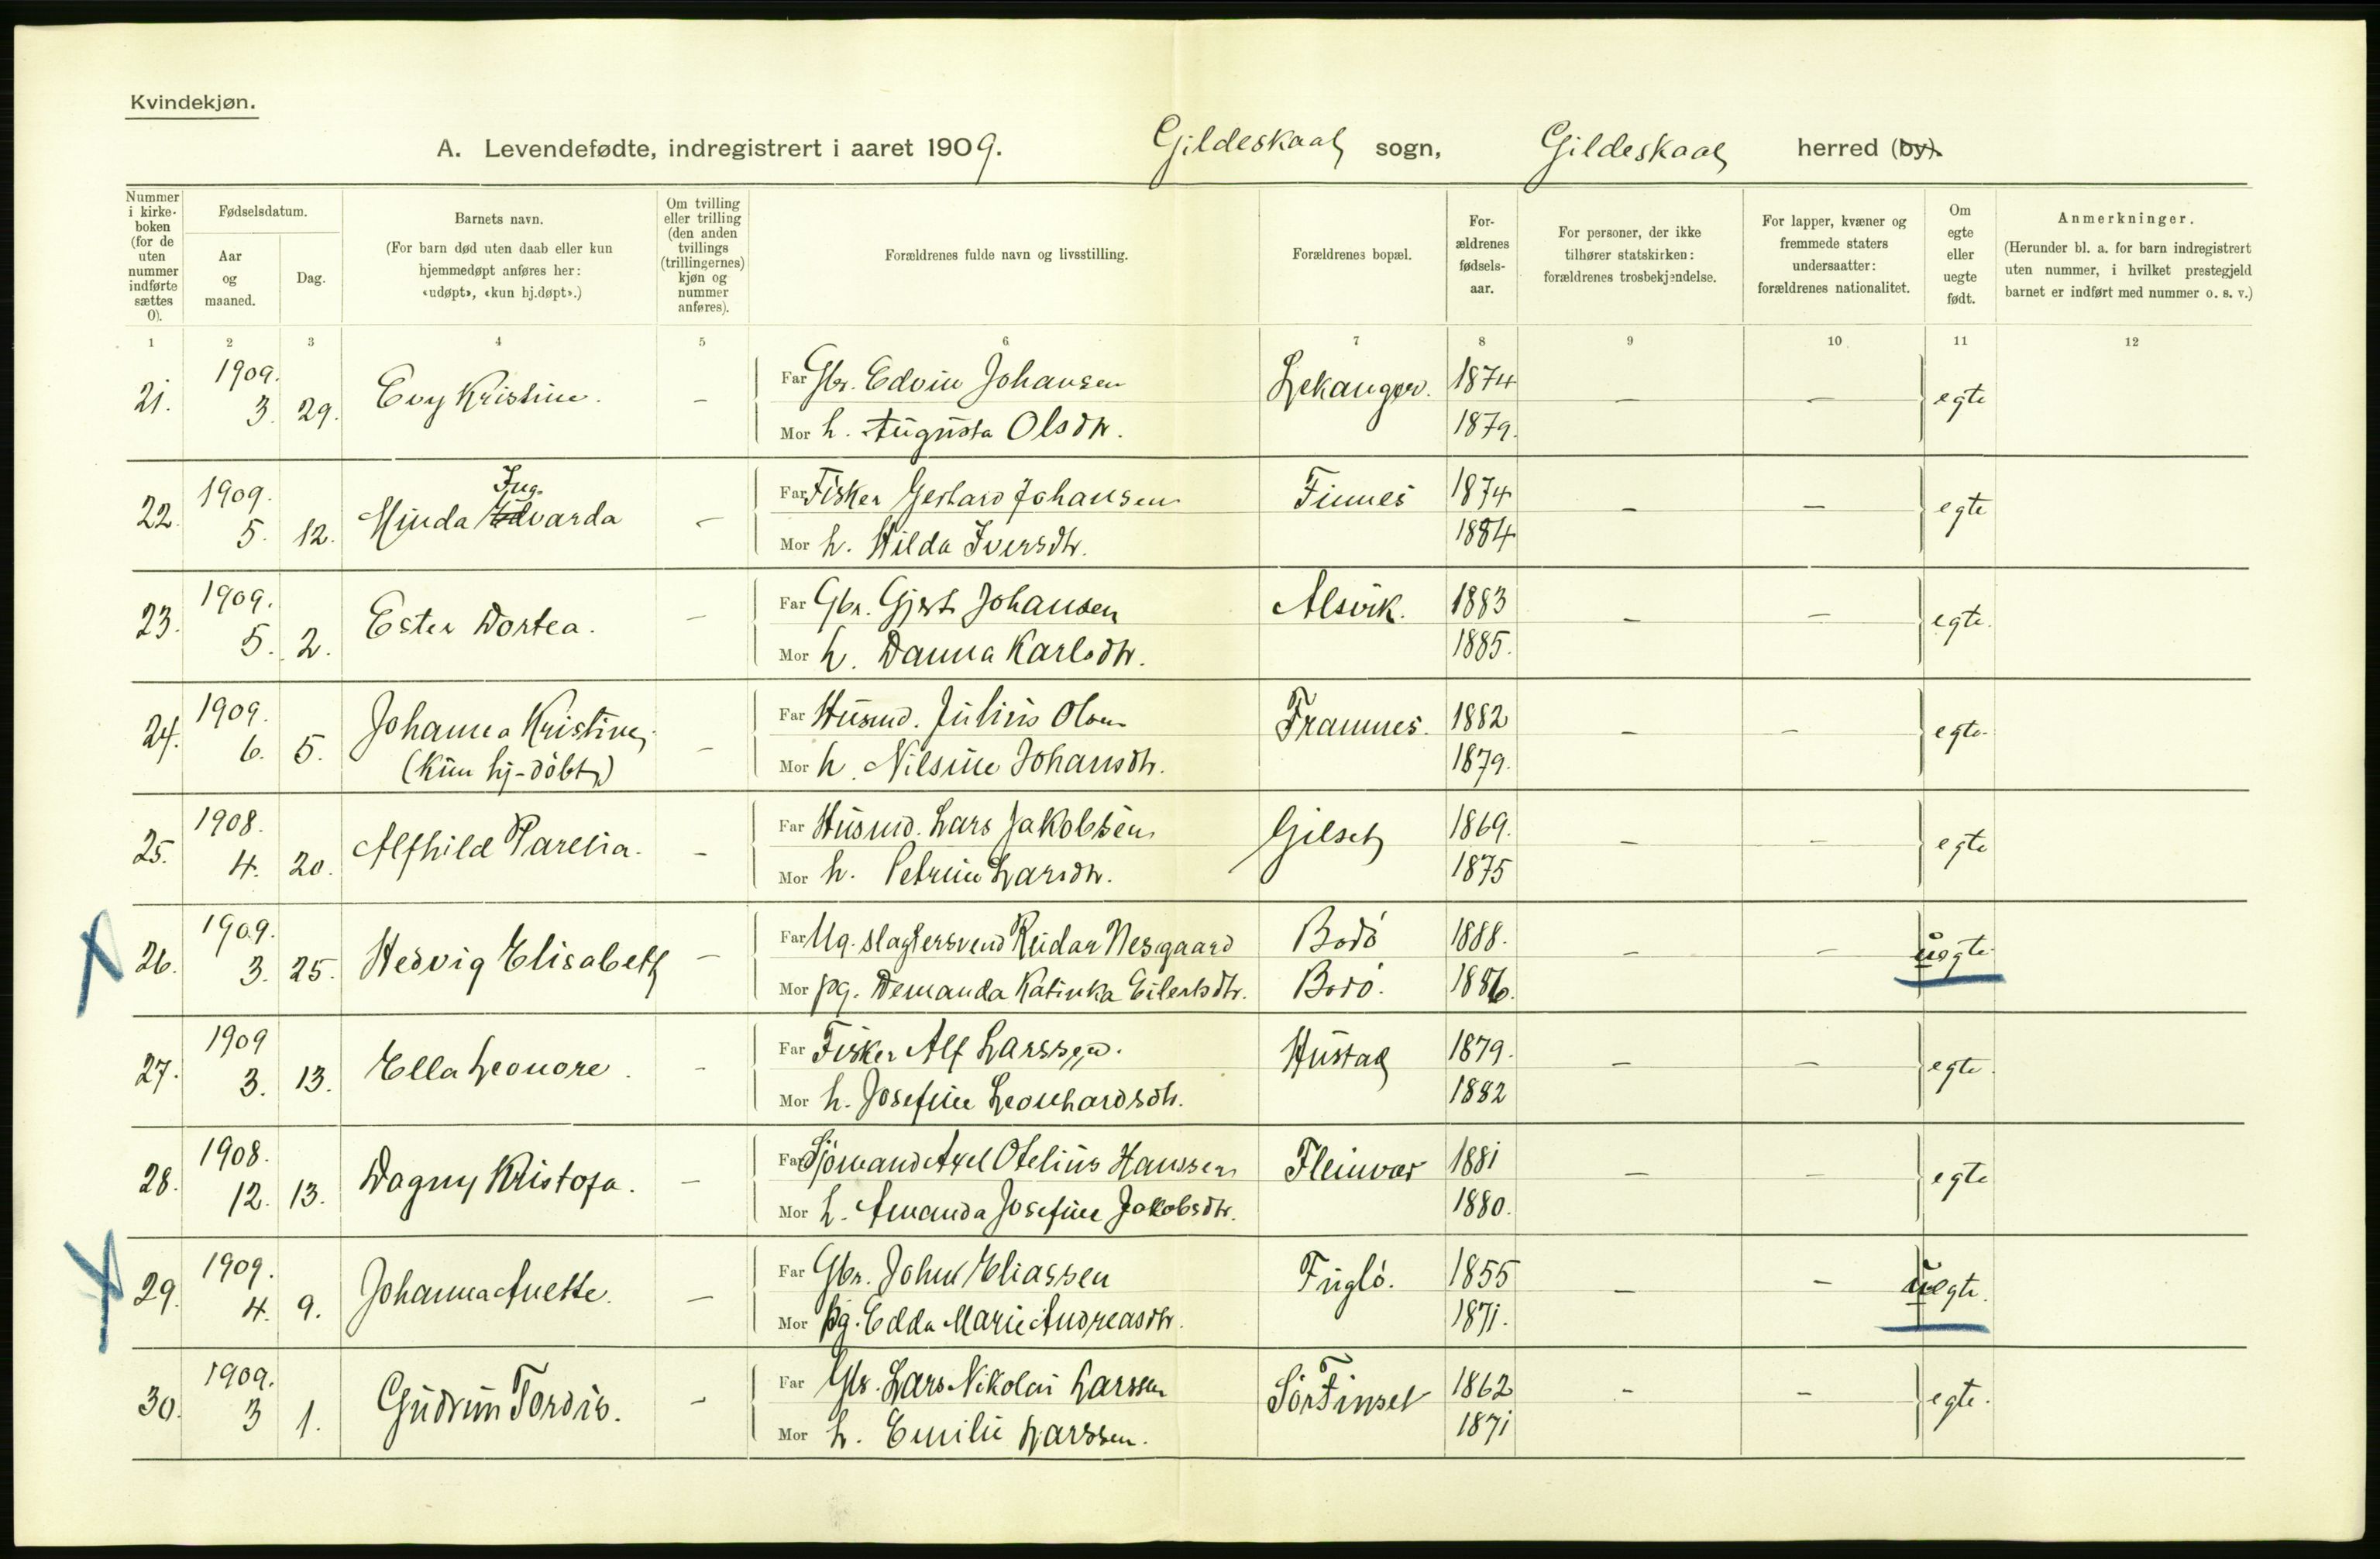 Kvindekjøn.
A. Levendefødte, indregistrert i aaret 1909. Gildeskaal sogn, Gildeskaal herred (by).
Nummer i kirke-boken (for de uten nummer indførte sættes 0).
Fødselsdatum.
Aar og maaned.
Dag.
Barnets navn.
(For barn død uten daab eller kun hjemmedøpt anføres her: «udøpt», «kun hj.døpt».)
Om tvilling eller trilling (den anden tvillings (trillingernes) kjøn og nummer anføres).
Forældrenes fulde navn og livsstilling.
Forældrenes bopæl.
For-ældrenes fødsels-aar.
For personer, der ikke tilhører statskirken: forældrenes trosbekjendelse.
For lapper, kvæner og fremmede staters undersaatter: forældrenes nationalitet.
Om egte eller uegte født.
Anmerkninger.
(Herunder bl. a. for barn indregistrert uten nummer, i hvilket prestegjeld barnet er indført med nummer o. s. v.)
1 2 3 4 5 6 7 8 9 10 11 12
21. 1909. 3. 29. Evy Kristine. – Far Gbr. Edvin Johansen 1874 – – egte
Mor h. Augusta Olsdtr. 1879.
22. 1909. 5. 12. Minda Ing Edvarda – Far Fisker Gerhard Johansen Finnes 1874 – – egte
Mor h. Hilda Iversdtr. 1884
23. 1909. 5. 2. Ester Dortea. – Far Gbr. Gjert Johansen Alsvik. 1883 – – egte.
Mor h. Danna Karlsdtr. 1885.
24. 1909. 6. 5. Johanna Kristine, – Far Husmd. Julius Olsen Framnes. 1882 – – egte.
(Kun hj-döbt) Mor h. Nilsine Johansdtr. 1879.
25. 1908. 4. 20. Alfhild Parelia. – Far Husmd. Lars Jakobsen Gilset 1869. – – egte
Mor h. Petrine Larsdtr. 1875
26. 1909. 3. 25. Hedvig Elisabeth – Far Ug. slagtersvend Reidar Nesgaard Bodö 1888. – – uegte.
Mor pg. Demanda Katinka Eilertsdtr. Bodö. 1886.
27. 1909 3. 13. Ella Leonore. – Far Fisker Alf Larssen. Hustad 1879. – – egte.
Mor h. Josefine Leonhardsdtr. 1882
28. 1908. 12. 13. Dagny Kristofa. – Far Sjömand Axel Otelius Hanssen Fleinvær 1881 – – egte
Mor h. Amanda Josefine Jakobsdtr. 1880.
29. 1909. 4. 9. Johanna Anette. – Far Gbr. Johan Eliassen Fuglö. 1855 – – uegte.
Mor pg. Edda Marie Andreasdtr. 1871.
30. 1909. 3 1. Gudrun Tordis. – Far Gbr. Lars Nikolai Larssen SörFinset 1862 – – egte.
Mor h. Emilie Larssen. 1871